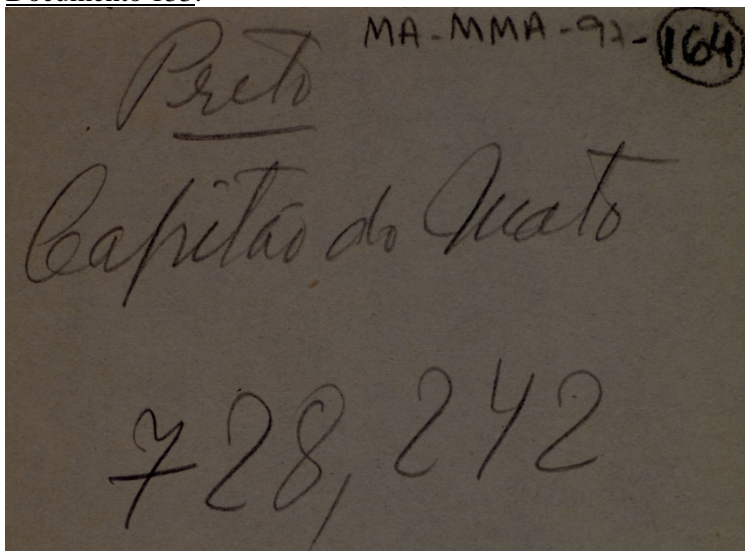 MA-MMA-97-164
Preto
Capitão do Mato
728, 242